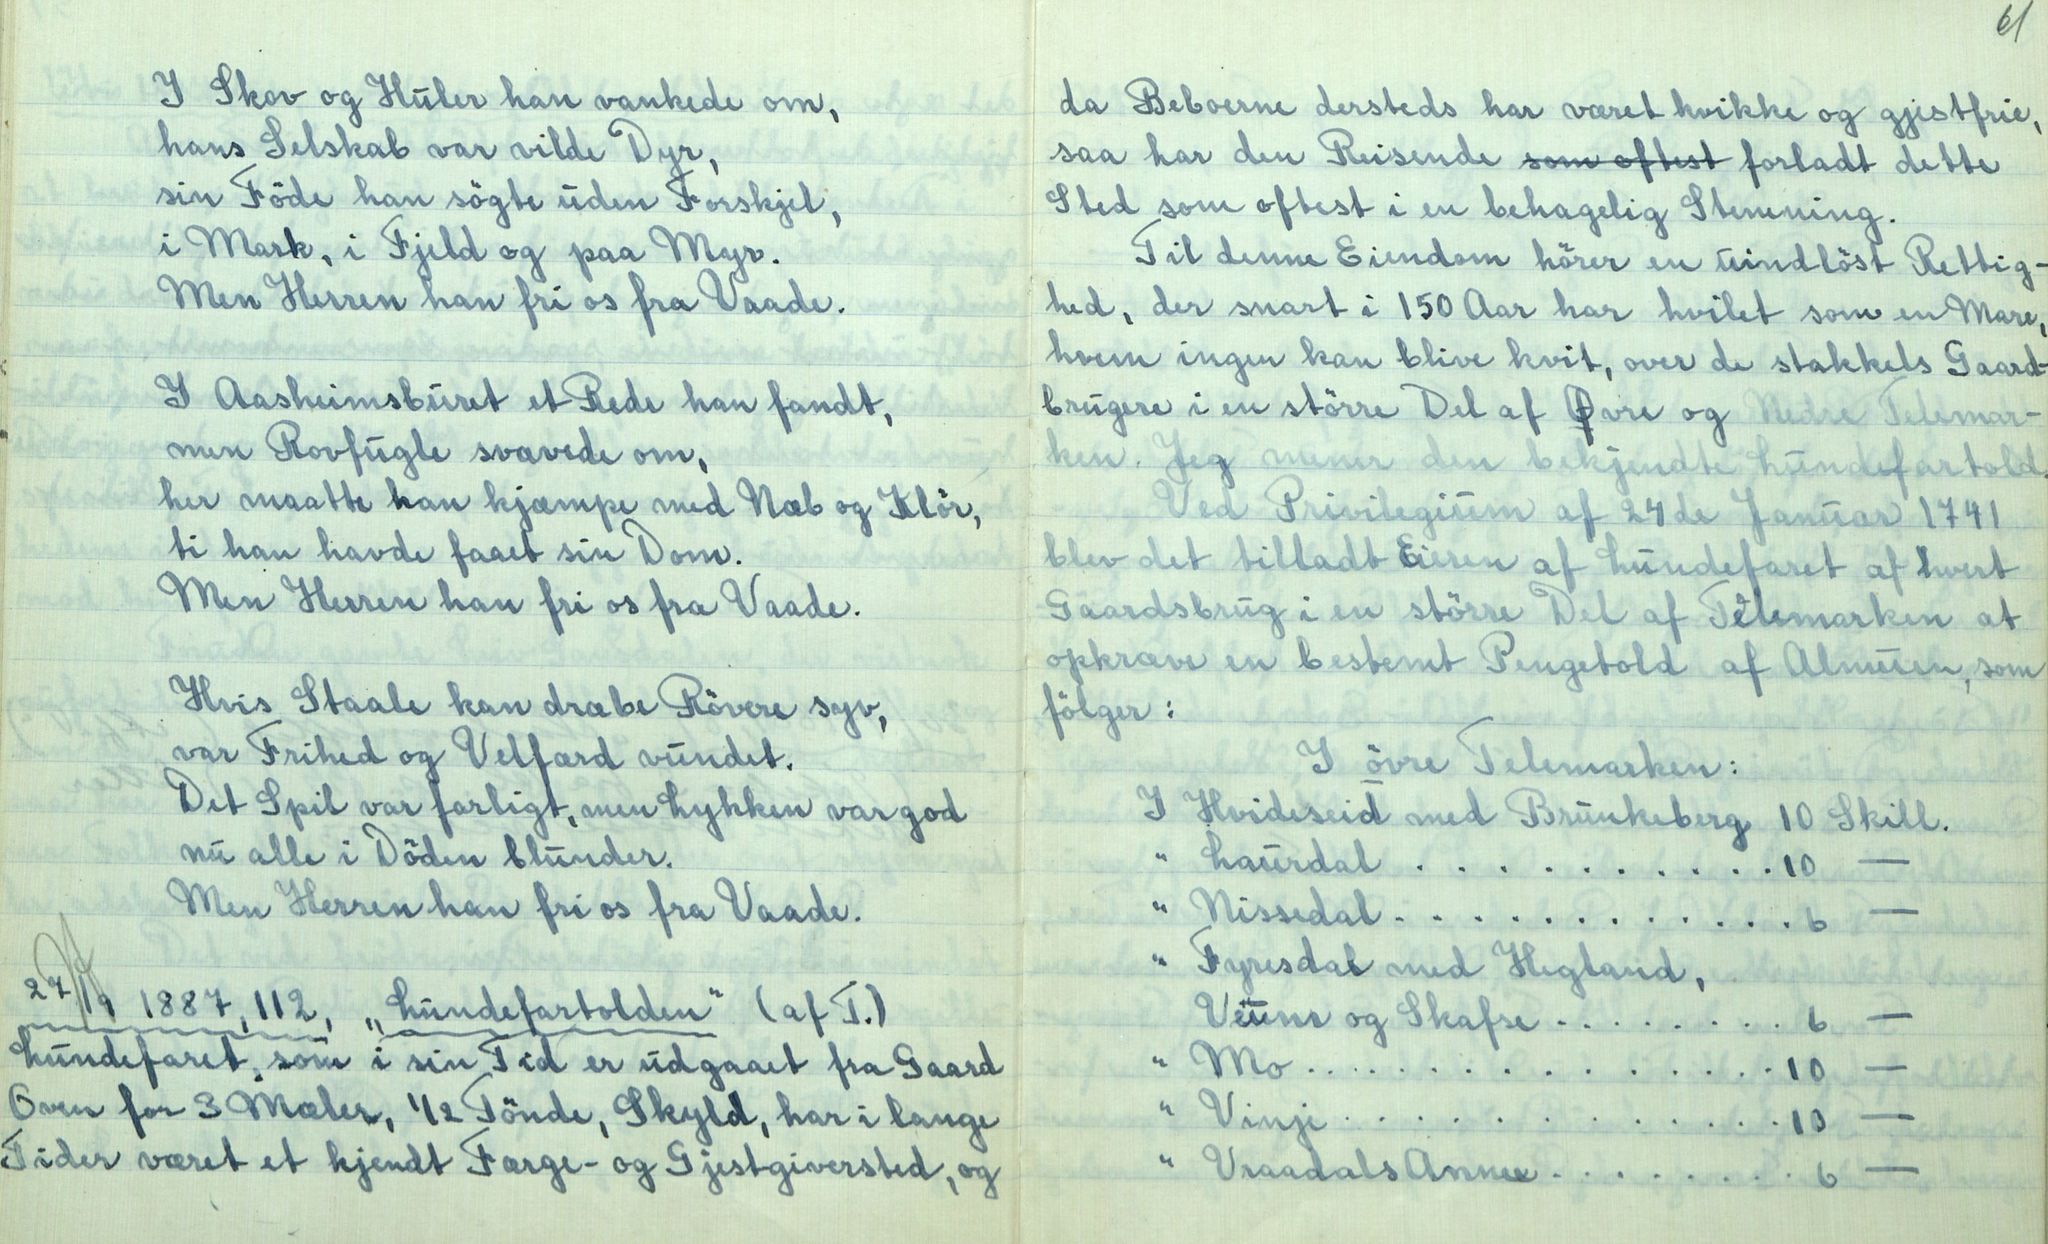 I Skov og Huler han vankede om,
hans Selskab var vilde Dyr,
sin Föde han sögte uden Forskjel,
i Mark, i Fjeld og paa Myr.
Men Herren han fri os fra Vaade.
I Aasheimsburet et Rede han fandt,
men Rovfugle svævede om,
her maatte han kjæmpe med Næb og Klör,
ti han havde faaet sin Dom.
Men Herren han fri os fra Vaade.
Hvis Staale kan dræbe Rövere syv,
var Frihed og Velfærd vundet.
Det Spil var farligt, men Lykken var god
nu alle i Döden blunder.
Men Herren han fri os fra Vaade.
27/9 1887, 112, „Lundefartolden" (af T.)
Lundefaret, som i sin Tid er udgaaet fra Gaard
Oven for 3 Mæler, 1/2 Tönde, Skyld, har i lange
Tider været et kjendt Færge- og Gjestgiversted, og
61
da Beboerne dersteds har været kvikke og gjestfrie,
saa har den Reisende som oftest forladt dette
Sted som oftest i en behagelig Stemning.
Til denne Eiendom hörer en uindlöst Rettig-
hed, der snart i 150 Aar har hvilet som en Mare,
hvem ingen kan blive kvit, over de stakkels Gaard-
brugere i en större Del af Øvre og Nedre Telemar-
ken. Jeg mener den bekjendte Lundefartold.
Ved Privilegium af 24de Januar 1741
blev det tilladt Eieren af Lundefaret af hvert
Gaardsbrug i en större Del af Telemarken at
opkræve en bestemt Pengetold af Almuen, som
fölger:
I övre Telemarken:
I Hvideseid med Brunkeberg 10 Skill.
" Laurdal . . . . . . . . . . . 10 —
" Nissedal . . . . . . . . . . . . 6 —
" Fyresdal med Hegland,
Veum og Skafse . . . . . . . . 6 —
" Mo . . . . . . . . . . . . . . . 10 —
" Vinje . . . . . . . . . . . . . . 10 —
" Vraadals Annex . . . . . . . . 6 —